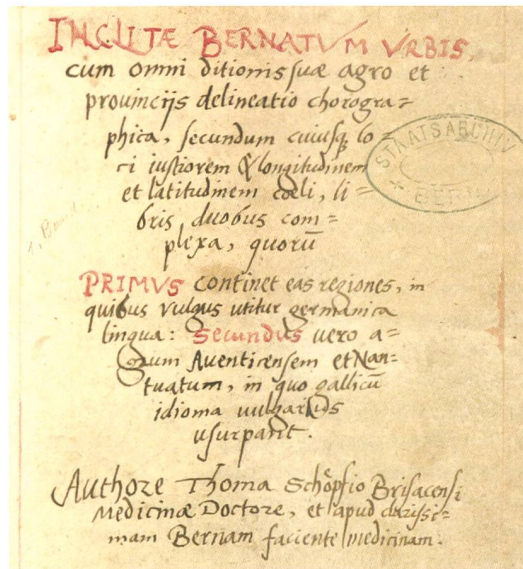 INCLITÆ BERNATVM VRBIS,
cum omni ditionis suæ agro et
provincijs delineatio chorogra=
phica, secundum cuiusq; lo=
ci iustiorem & longitudinem
et latitudinem cœli, li=
bris duobus com=
plexa, quorū
PRIMVS continet eas regiones, in
quibus vulgus utitur germanica
lingua: Secundus vero a=
grum Aventicensem et Nan=
tuatum, in quo gallicū
idioma vulgarius
usurpant.
Authore Thoma Schöpfio Brisacensi
Medicinæ Doctore, et apud clarissi=
mam Bernam faciente medicinam.
STAATSARCHIV
BERN